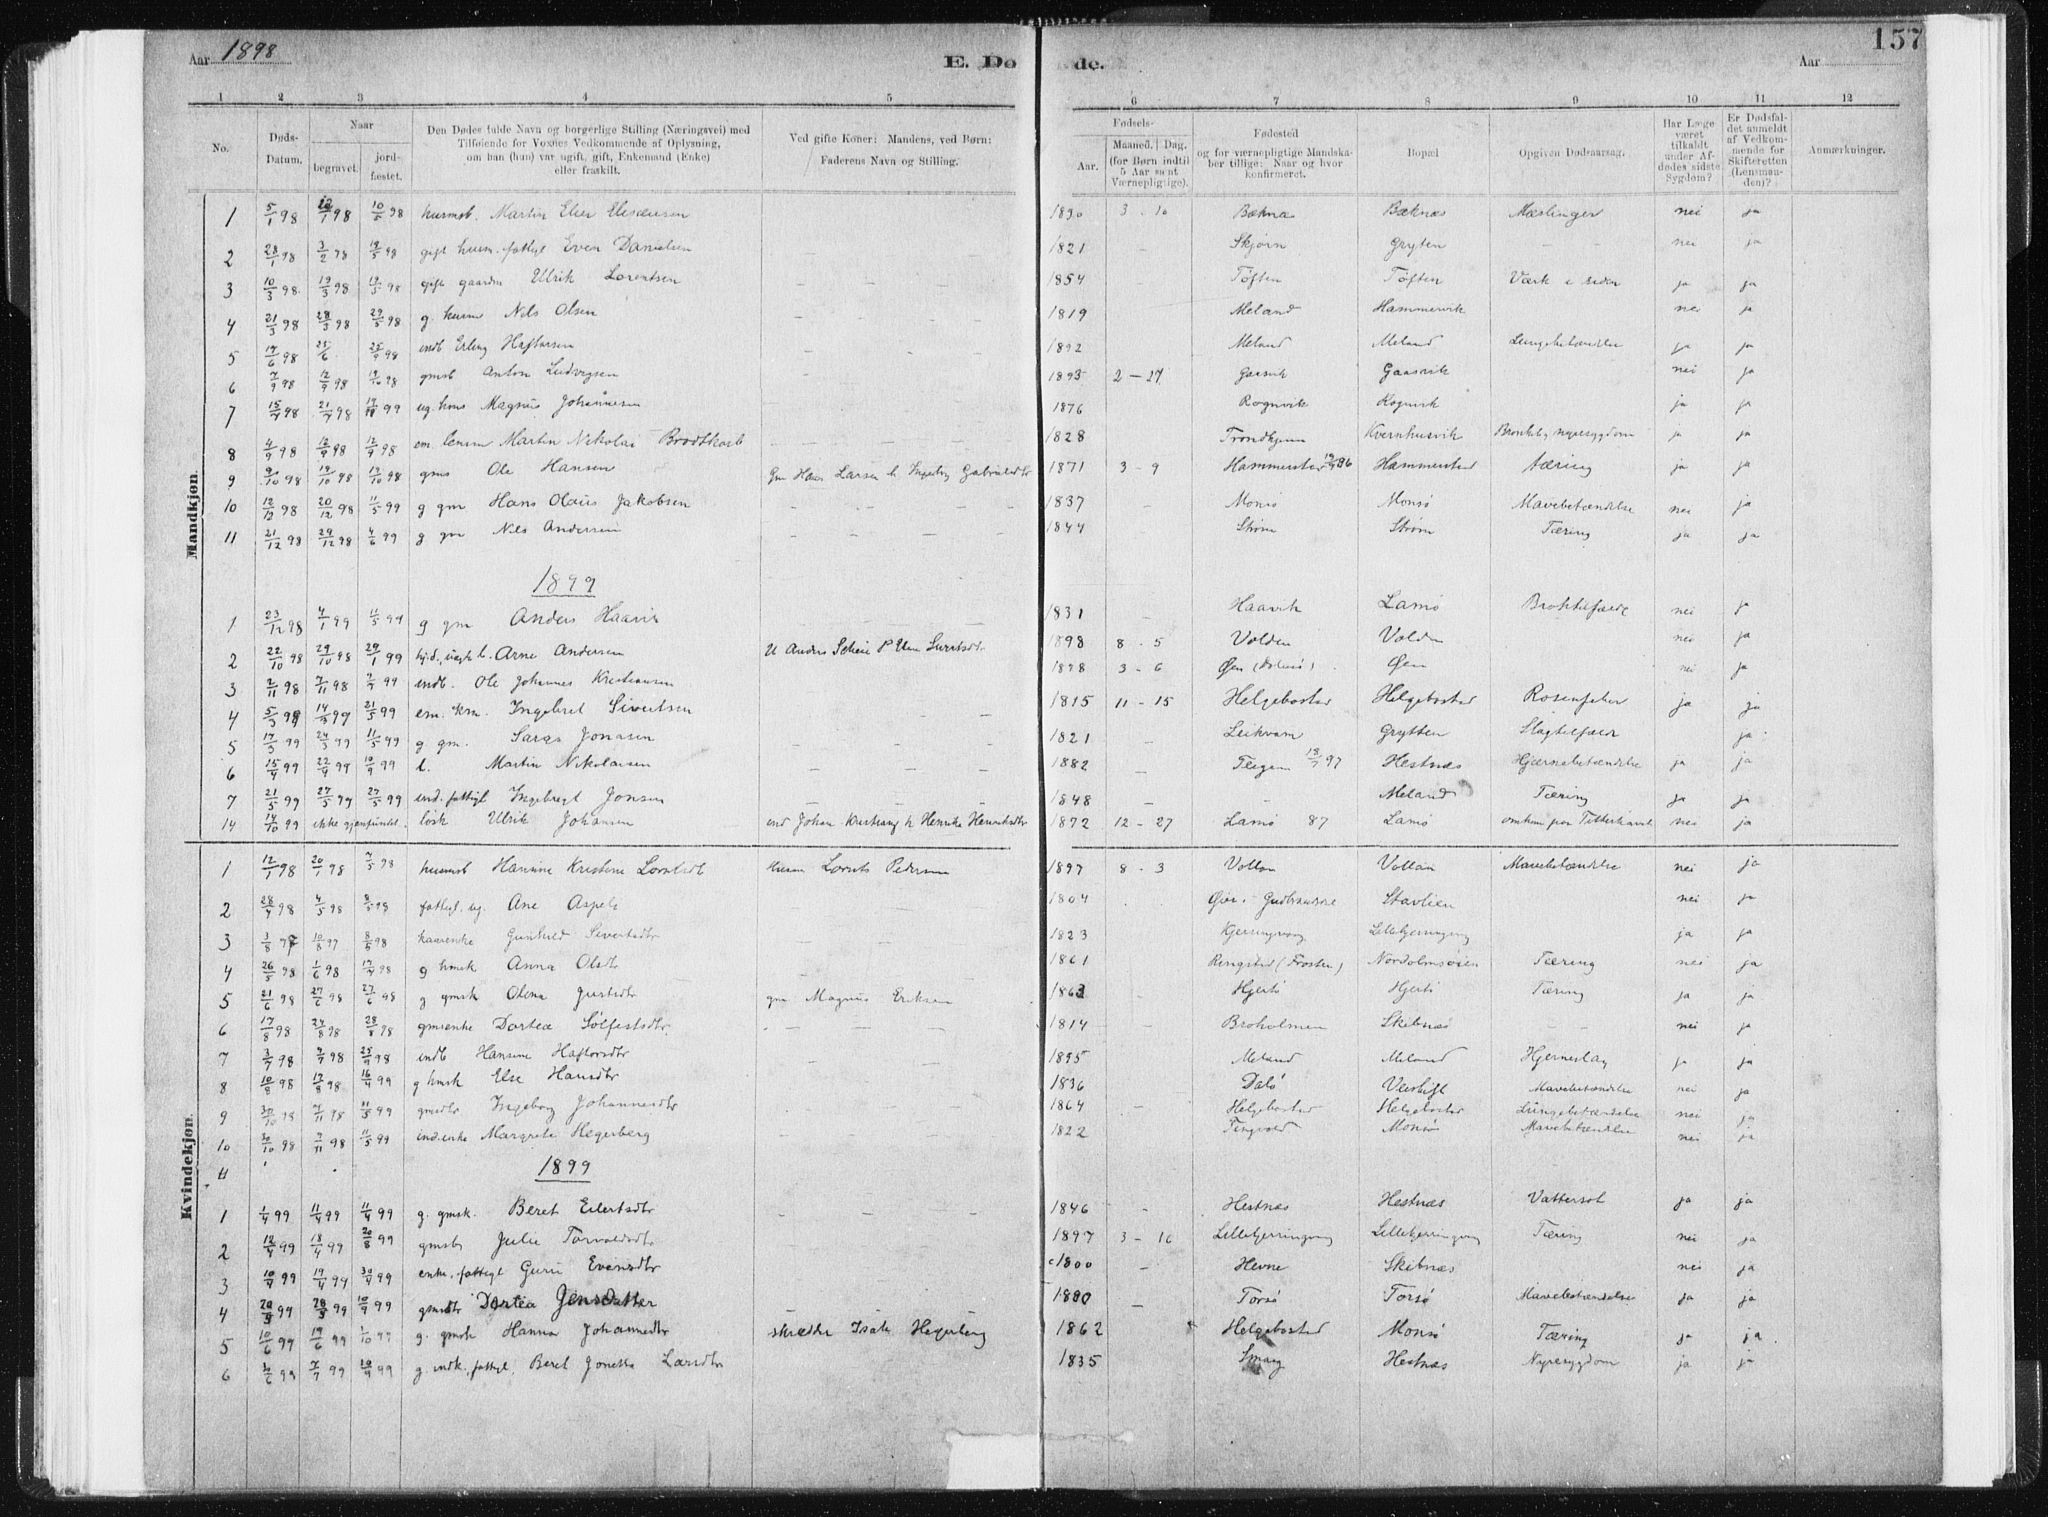 Aar 1898
E. Dø de.
157
Aar
1 2 3 4 5 6 7 8 9 10 11 12
No.
Døds-Datum.
Naar
begravet.
jord-fæstet.
Den Dødes fulde Navn og borgerlige Stilling (Næringsvei) med Tilføiende for Voxnes Vedkommende af Oplysning, om han (hun) var ugift, gift, Enkemand (Enke) eller fraskilt.
Ved gifte Koner: Mandens, ved Børn: Faderens Navn og Stilling.
Fødsels-
Aar.
Maaned. Dag. (for Børn indtil 5 Aar samt Værnepligtige).
Fødested og for værnepligtige Mandskaber tillige: Naar og hvor konfirmeret.
Bopæl
Opgiven Dødsaarsag.
Har Læge været tilkaldt under Afdødes sidste Sygdom?
Er Dødsfaldet anmeldt af Vedkommende for Skifteretten (Lensmanden)?
Anmærkninger.
Mandkjøn.
1 5/1 98 98 10/5 98 husmsb. Martin Elier Eliseussen 1890 3 - 10 Bæknæs Bæknæs Mæslinger nei ja
2 28/1 98 3/2 98 19/5 98 gift husm. fattigl Even Danielsen 1821 Skjørn Gryten nei ja
3 10/3 98 19/3 98 19/5 98 gift gaardm Ulrik Lorentsen 1854 Tøften Tøften Værk i siden ja ja
4 21/3 98 28/3 98 29/5 98 g. husm Nils Olsen 1819 Meland Hammervik nei ja
5 17/6 98 25/6 25/9 98 indb Erling Haftorsen 1892 Meland Meland Lungebetændelse ja ja
6 7/9 98 12/9 98 98 gmsb Anton Ludvigsen 1895 2 - 27 Gaasvik Gaasvik nei ja
7 15/7 98 21/7 98 99 ug. hms Magnus Johannesen 1876 Rognvik Rognvik ja ja
8 4/9 98 12/9 98 12/9 98 em. lensm Martin Nikolai Brodtkorb 1828 Trondhjem Kvernhusvik Bronkit, nyresygdom ja ja
9 9/10 98 19/10 98 19/10 98 gms Ole Hansen Gm Hans Larsen h Ingeborg Gabrielsdtr 1871 3 - 9 Hammerstad 86 Hammerstad tæring ja ja
10 12/12 98 20/12 98 11/5 99 g gm Hans Olaus Jakobsen 1837 Monsø Monsø Mavebetændelse nei ja
11 21/12 98 29/12 98 4/6 99 g gm Nils Andersen 1844 Strøm Strøm Tæring ja ja
1899
1 23/12 98 4/1 99 11/5 99 g gm Anders Haavik 1831 Haavik Lamø Broktilfælde nei ja
2 22/10 98 29/10 98 29/1 99 Arne Andersen 1898 8 - 5 Volden Volden nei ja
3 2/11 98 7/11 98 99 indb. Ole Johannes Kristiansen 1898 3 - 6 Øen Øen nei ja
4 5/3 99 14/3 99 21/5 99 em. krm. Ingebret Sivertsen 1815 11 - 15 Helgebostad Helgebostad Rosenfeber ja ja
5 17/3 99 24/3 99 11/5 99 g gm. Jonasen 1821 Leikvam Grytten Slagtilfælde ja
6 15/4 99 22/4 99 10/9 99 l. Martin Nikolaisen 1882 Teigen 97 Hestnæs Hjærnebetændelse ja ja
7 21/5 99 27/5 99 27/5 99 ind. fattigl Ingebrigt Jonsen 1848 Meland Tæring ja ja
14 14/10 99 ikke gjenfundet. løsk Ulrik Johansen ind Johan Kristians h Henrike Henriksdtr 1872 12 - 27 Lamø 87 Lamø omkom paa Titterhavet nei ja
Kvindekjøn.
1 12/1 98 20/1 98 7/5 98 husmsb Hanine Kristine Lorntsdt Husm Lornts Pedersen 1897 8 - 3 Vollan Vollan Mavebetændelse nei ja
2 28/4 98 4/5 98 8/5 98 fattigl. ug. Ane Aspelt 1804 Gudbrandsd Stavlien nei ja
3 3/8 97 10/8 97 8/5 98 kaarenke Gunhild Sivertsdtr 1823 Kjerringvaag Lillekjerringvaag ja ja
4 26/5 98 1/6 98 17/7 98 g hmsk Anna Olsdtr 1861 Ringstad (Frosten) Nordolmsøien Tæring nei ja
5 21/6 98 27/6 98 27/6 98 g gmsk Olena Justsdtr gm Magnus Eriksen 1863 Hjertø Hjertø Tæring ja ja
6 17/8 98 24/8 98 28/8 98 gmsenke Dortea Sølfestsdtr. 1814 Broholmen Skibnæs nei ja
7 3/7 98 9/7 98 25/9 98 indb Hansine Haftorsdtr 1895 Meland Meland Hjerneslag ja ja
8 10/8 98 17/8 98 16/4 99 g hmsk Else Hansdtr 1836 Dalø Mavebetændelse nei ja
9 30/10 98 7/11 98 11/5 99 gmsdtr Ingeborg Johannesdtr 1864 Helgebostad Helgebostad Lungebetændelse nei ja
10 30/10 98 7/11 98 11/5 99 ind.enke Margrete Hegerberg 1822 Tingvold Monsø Mavebetændelse nei ja
11
1899
1 1/4 99 11/4 99 11/4 99 g. gmsk. Beret Eilertsdtr 1846 Hestnæs Hestnæs Vattersot ja ja
2 12/4 99 18/4 99 20/8 99 gmsb Julie Torvaldsdtr 1897 3 - 16 Lillekjerringvaag Lillekjerringvaag Tæring nei ja
3 10/4 99 19/4 99 30/4 99 enke, fattigl Guru Evensdtr c1800 Hevne Skibnæs nei ja
4 20/5 99 28/5 99 10/9 99 gmsdtr Dortea Jensdatter 1880 Torsø Torsø Mavebetændelse ja ja
5 10/6 99 19/6 99 1/10 99 g. gmsk Hanna Johannesdtr skrædder Isak Hegerberg 1862 Helgebostad Monsø Tæring ja ja.
6 99 7/7 99 10/9 99 g. indk, fattigl. Beret Jonetta Larsdtr 1835 Smaag Hestnæs Nyresygdom ja ja